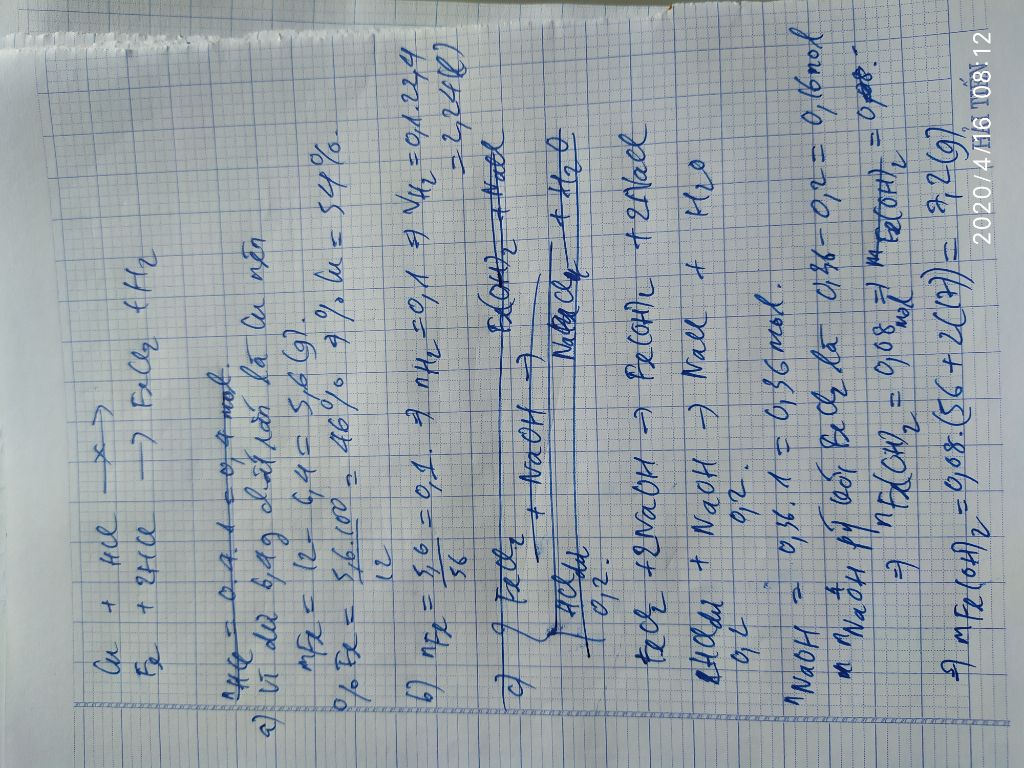 Cu + HCl —x→
Fe + 2HCl → FeCl2 + H2
nHCl = 0,4.1 = 0,4 mol.
a) Vì dư 6,4g chất rắn là Cu nên
mFe = 12 - 6,4 = 5,6 (g).
% Fe = 5,6.100 / 12 = 46% → % Cu = 54%.
b) nFe = 5,6 / 56 = 0,1. ⇒ nH2 = 0,1 ⇒ VH2 = 0,1.22,4
= 2,24 (l)
c) { FeCl2 + NaOH → Fe(OH)2 + NaCl
HCl dư 0,2. + H2O
FeCl2 + 2NaOH → Fe(OH)2 + 2NaCl
HCl dư + NaOH → NaCl + H2O
0,2 0,2.
nNaOH = 0,36.1 = 0,36 mol.
nNaOH pứ với FeCl2 là 0,36 - 0,2 = 0,16 mol
⇒ nFe(OH)2 = 0,08 mol ⇒ mFe(OH)2 = 0,08.
⇒ mFe(OH)2 = 0,08.(56 + 2(17)) = 7,2 (g)
2020/4/16 08:12